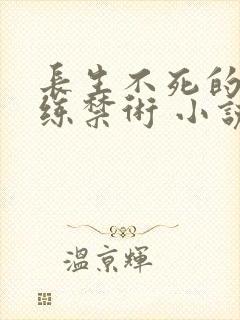 長生不死的
练禁術 小説
溫京輝